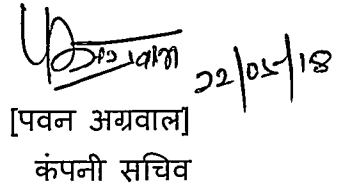 22/05/18
[पवन अग्रवाल]
कंपनी सचिव